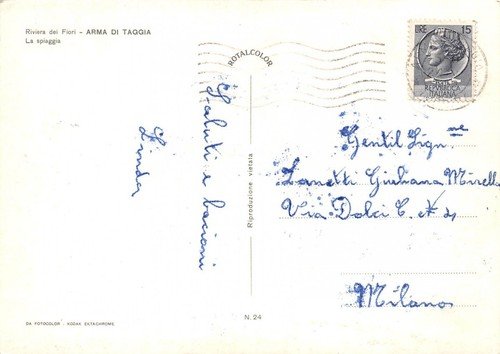 Riviera dei Fiori - ARMA DI TAGGIA
La spiaggia
ROTALCOLOR
15
REPUBBLICA
ITALIANA
Saluti e bacioni
Linda
Gentil Sign.ne
Zanetti Giuliana Mirella
Via Dolci C. N 4
Milano
Riproduzione vietata
DA FOTOCOLOR - KODAK EKTACHROME
N. 24